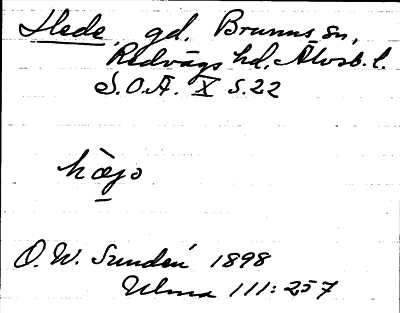 Hede gd. Brunns sn,
Redvägs hd. Älvsb. l.
S.O.Ä. X S.22
hægo
O. W. Sundén 1898
Ulma 111:257